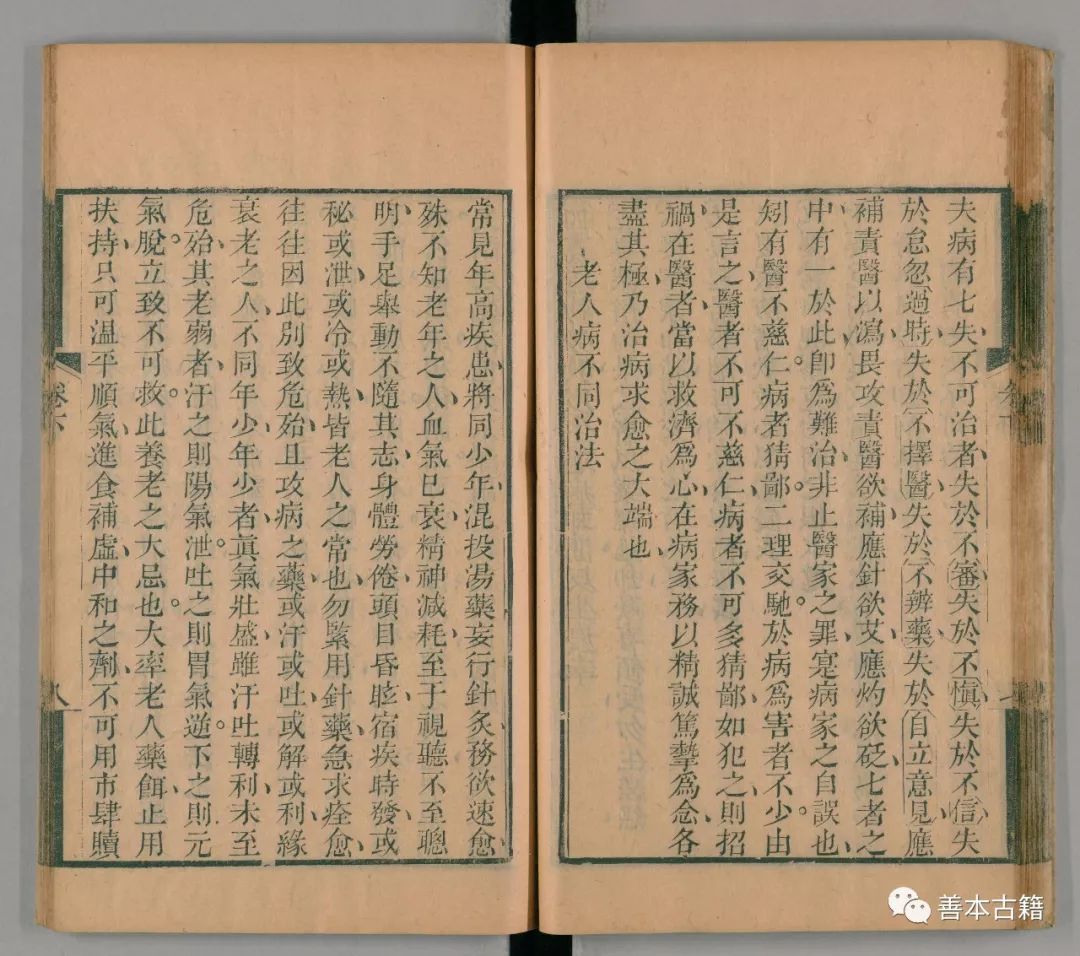 夫病有七失不可治者失於不審失於不慎失於不信失
於怠忽過時失於不擇醫失於不辨藥失於自立意見應
補責醫以瀉畏攻責醫欲補應針欲艾應灼欲砭七者之
中有一於此卽爲難治非止醫家之罪寔病家之自誤也
矧有醫不慈仁。病者猜鄙。二理交馳。於病爲害者不少。由
是言之醫者不可不慈仁病者不可多猜鄙如犯之則招
禍在醫者當以救濟爲心在病家務以精誠篤摯爲念各
盡其極乃治病求愈之大端也
老人病不同治法
常見年高疾患將同少年混投湯藥妄行針灸務欲速愈
殊不知老年之人血氣已衰精神減耗至于視聽不至聰
明手足舉動不隨其志身體勞倦頭目昏眩宿疾時發或
秘或泄或冷或熱皆老人之常也勿緊用針藥急求痊愈
往往因此別致危殆且攻病之藥或汗或吐或解或利緣
衰老之人不同年少年少者眞氣壯盛雖汗吐轉利未至
危殆其老弱者汗之則陽氣泄。吐之則胃氣逆。下之則元
氣脫。立致不可救。此養老之大忌也。大率老人藥餌止用
扶持只可溫平順氣進食補虛中和之劑不可用市肆贖
卷下
八
善本古籍